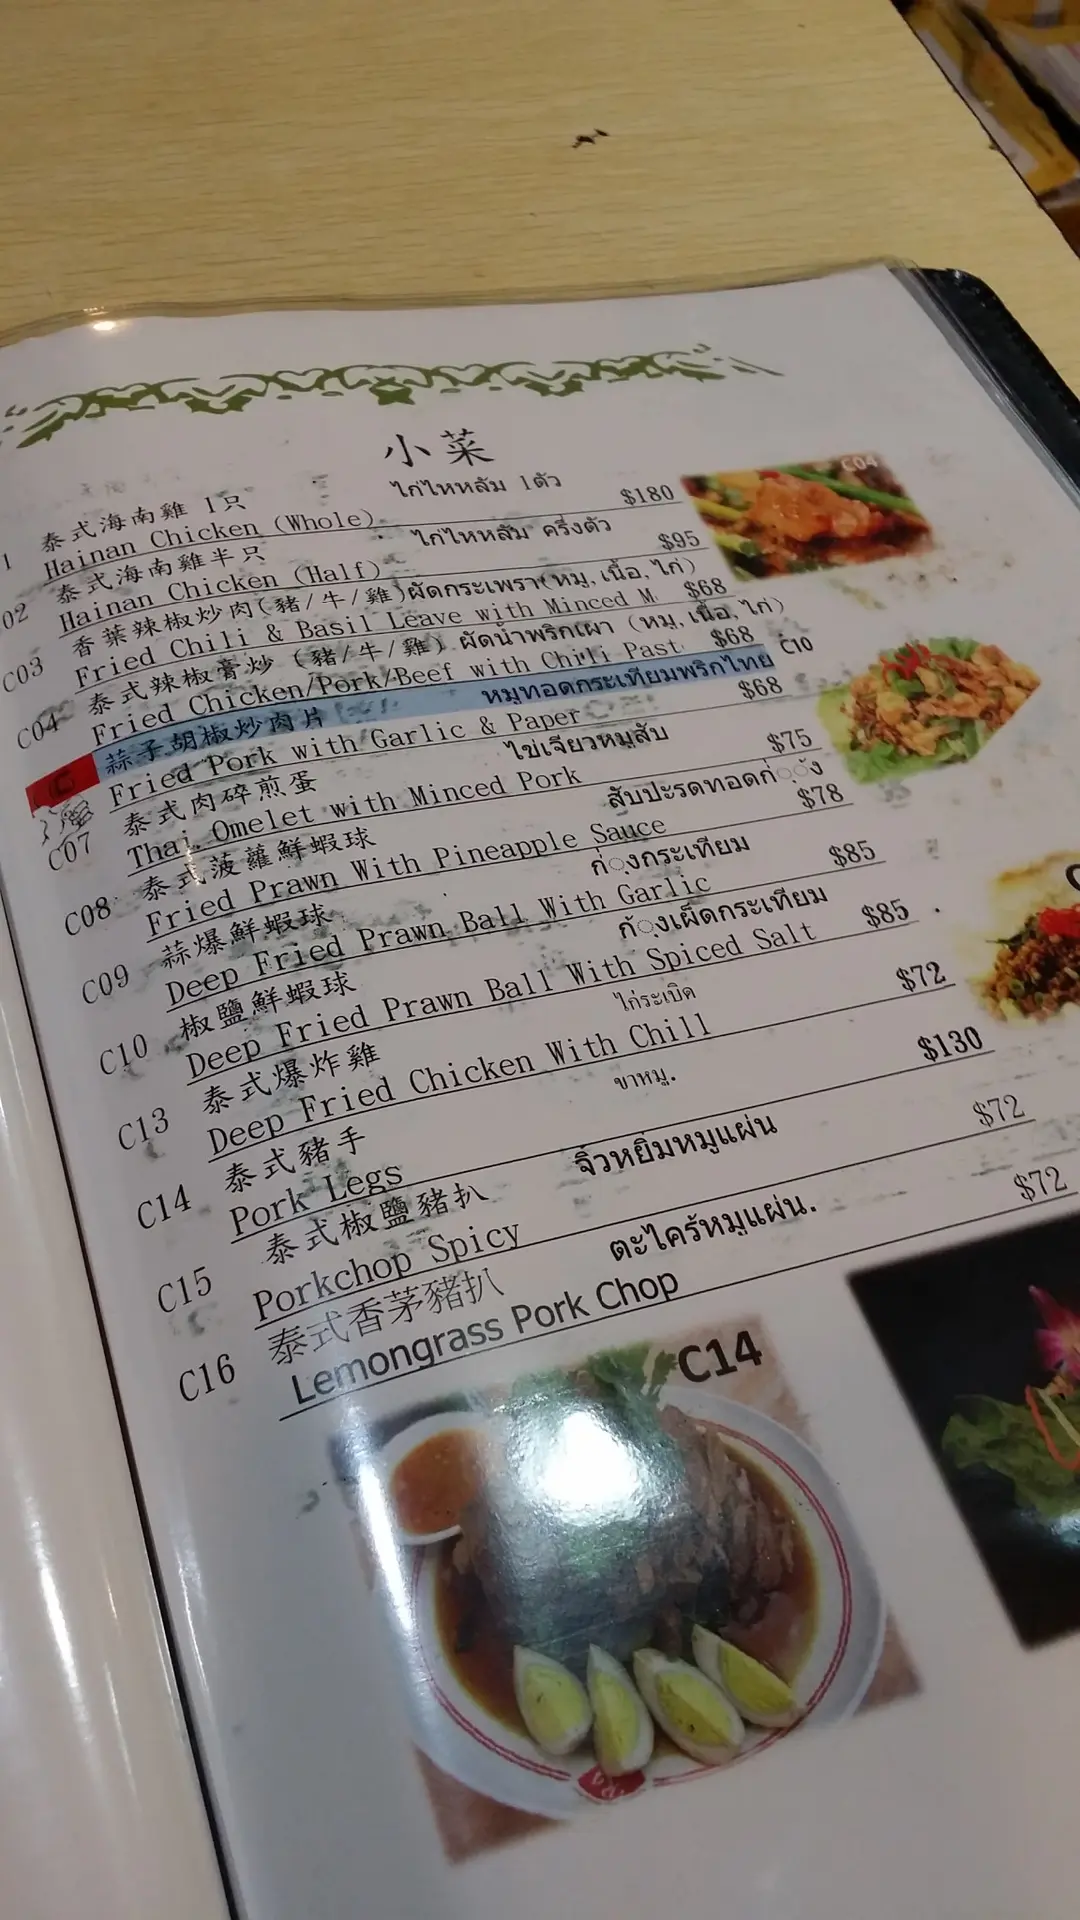 小菜
1 泰式海南雞 1只 ไก่ไหหลัม 1ตัว
Hainan Chicken (Whole) $180
02 泰式海南雞半只 ไก่ไหหลัม ครึ่งตัว
Hainan Chicken (Half) $95
C03 香葉辣椒炒肉(豬/牛/雞)ผัดกระเพรา(หมู,เนื้อ,ไก่)
Fried Chili & Basil Leave with Minced M $68
C04 泰式辣椒膏炒 (豬/牛/雞) ผัดน้ำพริกเผา (หมู,เนื้อ,ไก่)
Fried Chicken/Pork/Beef with Chili Past $68
蒜子胡椒炒肉片 หมูทอดกระเทียมพริกไทย
Fried Pork with Garlic & Paper $68
C07 泰式肉碎煎蛋 ไข่เจียวหมูสับ
Thai Omelet with Minced Pork $75
C08 泰式菠蘿鮮蝦球 สับปะรดทอดกุ่้ง
Fried Prawn With Pineapple Sauce $78
C09 蒜爆鮮蝦球 กุ่งกระเทียม
Deep Fried Prawn Ball With Garlic $85
C10 椒鹽鮮蝦球 กุ้งเผ็ดกระเทียม
Deep Fried Prawn Ball With Spiced Salt $85
C13 泰式爆炸雞 ไก่ระเบิด
Deep Fried Chicken With Chill $72
C14 泰式豬手 ขาหมู.
Pork Legs $130
C15 泰式椒鹽豬扒 จิ้วหยิมหมูแผ่น
Porkchop Spicy $72
C16 泰式香茅豬扒 ตะไคร้หมูแผ่น.
Lemongrass Pork Chop $72
C04
C10
C14